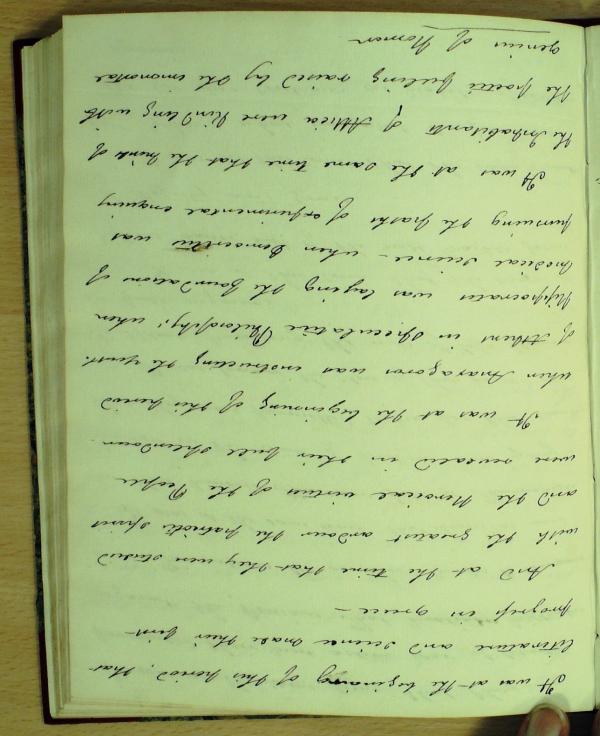 It was at the beginning of this period, that
literature and science made their first
progress in Greece –
And at the time that they were studied
with the greatest ardour the patriotic spirit
and the Heroical virtues of the People
were revealed in their full splendour
It was at the beginning of this period
when Anaxagoras was instructing the youth
of Athens in speculative Philosophy; when
Hippocrates was laying the foundations of
medical science – when Democritus was
pursuing the paths of experimental enquiry
It was at the same time that the minds of
the Inhabitants of Attica were kindling with
the poetic feeling raised by the immortal
genius of Homer